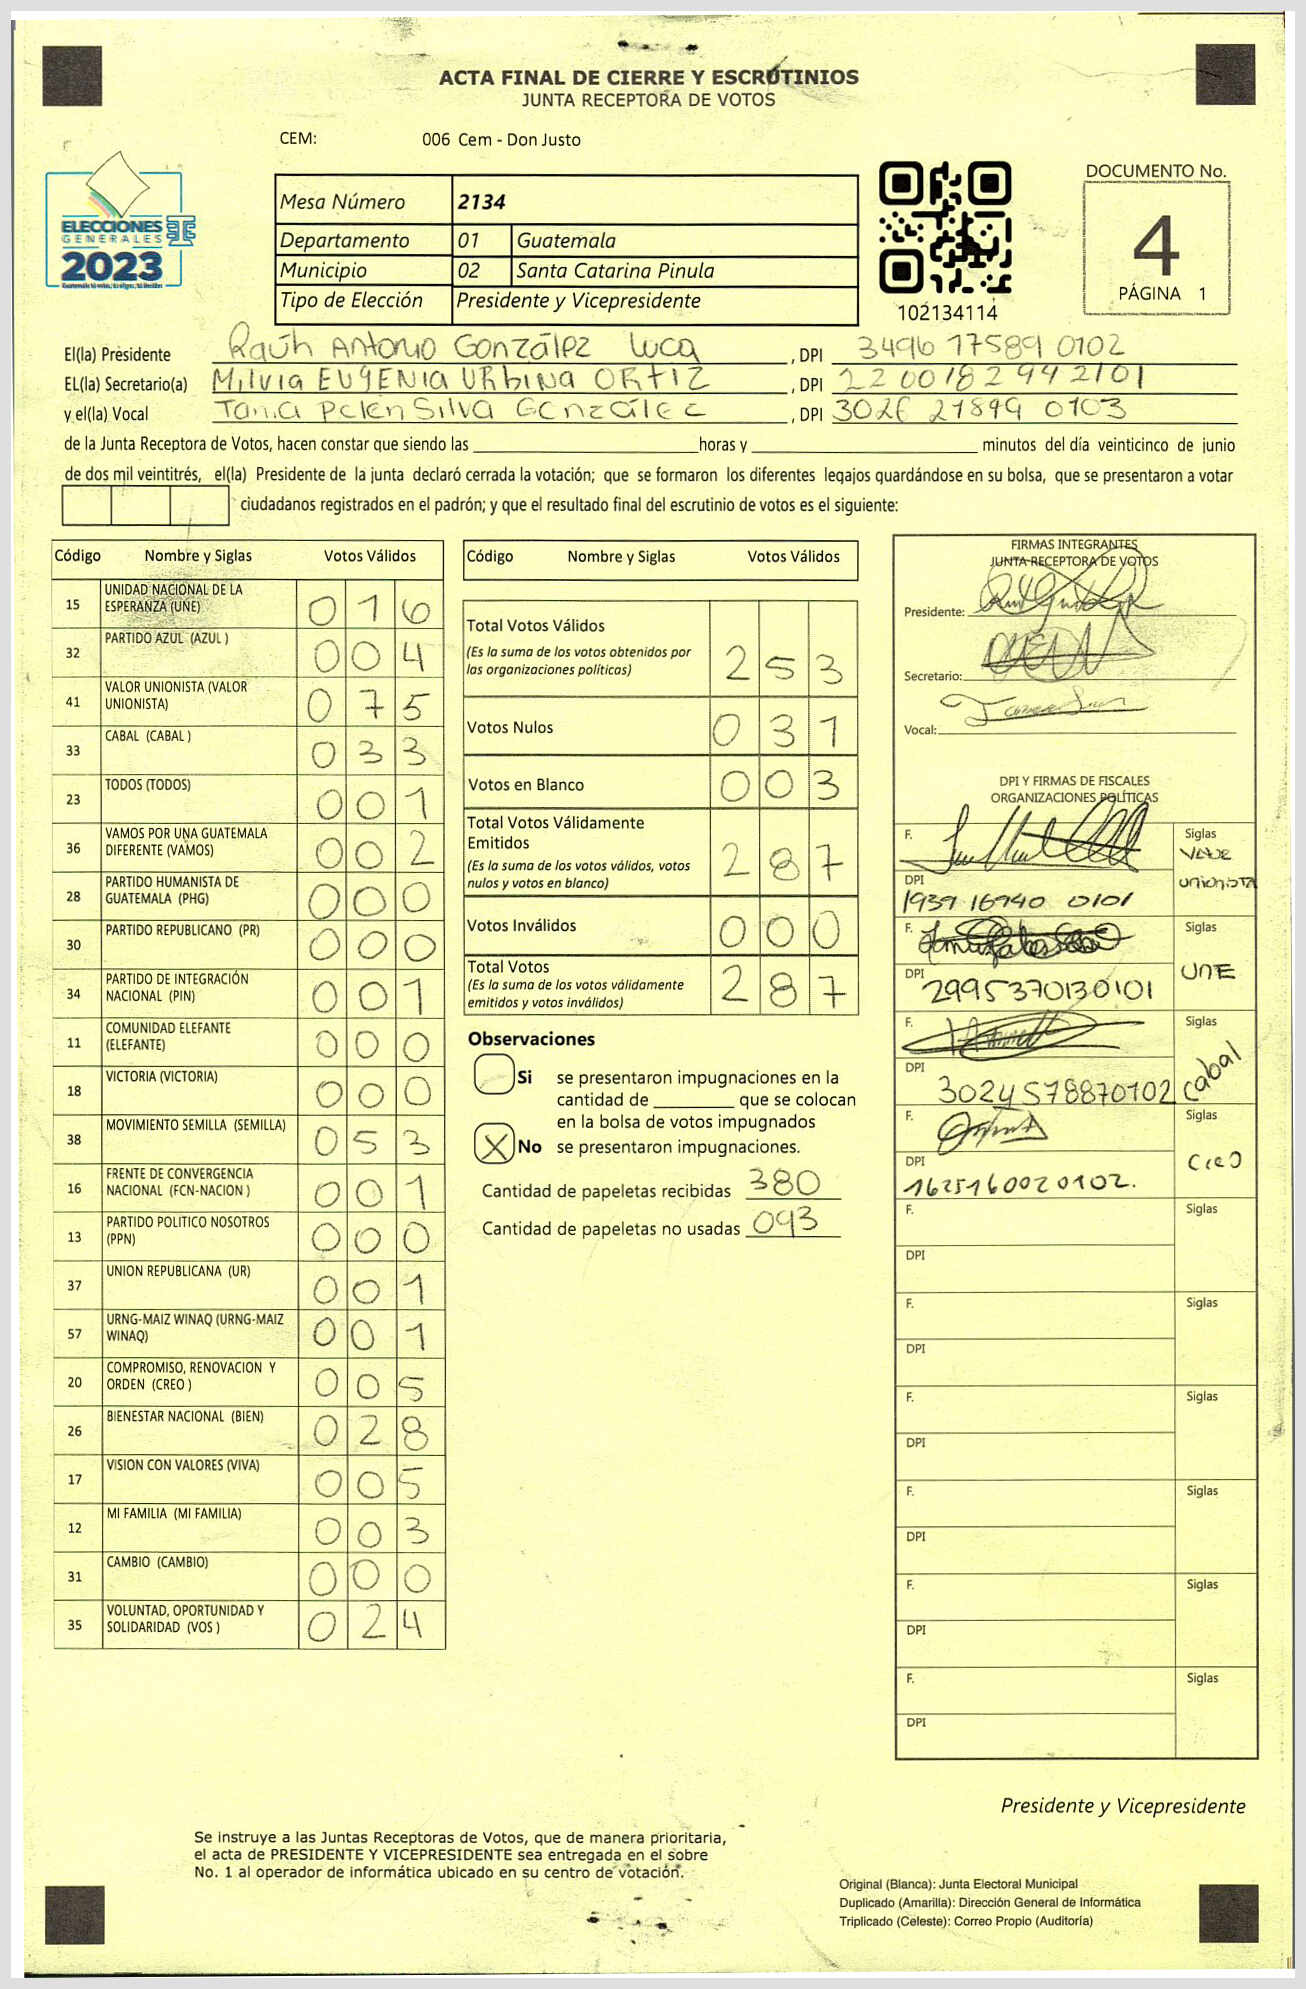 ACTA FINAL DE CIERRE Y ESCRUTINIOS
JUNTA RECEPTORA DE VOTOS
CEM: 006 Cem - Don Justo
ELECCIONES
GENERALES
2023
Mesa Número 2134
Departamento 01 Guatemala
Municipio 02 Santa Catarina Pinula
Tipo de Elección Presidente y Vicepresidente
102134114
DOCUMENTO No.
4
PÁGINA 1
El(la) Presidente Raúh Antonio González Luca, DPI 3496 17589 0102
EL(la) Secretario(a) Milvia EUgENIA URbINA ORTIZ, DPI 2200182942101
y el(la) Vocal Tania Pelen Silva González, DPI 3026 21899 0103
de la Junta Receptora de Votos, hacen constar que siendo las horas y minutos del día veinticinco de junio
de dos mil veintitrés, el(la) Presidente de la junta declaró cerrada la votación; que se formaron los diferentes legajos guardándose en su bolsa, que se presentaron a votar
ciudadanos registrados en el padrón; y que el resultado final del escrutinio de votos es el siguiente:
Código Nombre y Siglas Votos Válidos
15 UNIDAD NACIONAL DE LA ESPERANZA (UNE) 016
32 PARTIDO AZUL (AZUL ) 004
41 VALOR UNIONISTA (VALOR UNIONISTA) 075
33 CABAL (CABAL ) 033
23 TODOS (TODOS) 001
36 VAMOS POR UNA GUATEMALA DIFERENTE (VAMOS) 002
28 PARTIDO HUMANISTA DE GUATEMALA (PHG) 000
30 PARTIDO REPUBLICANO (PR) 000
34 PARTIDO DE INTEGRACIÓN NACIONAL (PIN) 001
11 COMUNIDAD ELEFANTE (ELEFANTE) 000
18 VICTORIA (VICTORIA) 000
38 MOVIMIENTO SEMILLA (SEMILLA) 053
16 FRENTE DE CONVERGENCIA NACIONAL (FCN-NACION ) 001
13 PARTIDO POLITICO NOSOTROS (PPN) 000
37 UNION REPUBLICANA (UR) 001
57 URNG-MAIZ WINAQ (URNG-MAIZ WINAQ) 001
20 COMPROMISO, RENOVACION Y ORDEN (CREO ) 005
26 BIENESTAR NACIONAL (BIEN) 028
17 VISION CON VALORES (VIVA) 005
12 MI FAMILIA (MI FAMILIA) 003
31 CAMBIO (CAMBIO) 000
35 VOLUNTAD, OPORTUNIDAD Y SOLIDARIDAD (VOS ) 024
Código Nombre y Siglas Votos Válidos
Total Votos Válidos 253
(Es la suma de los votos obtenidos por
las organizaciones políticas)
Votos Nulos 031
Votos en Blanco 003
Total Votos Válidamente
Emitidos 287
(Es la suma de los votos válidos, votos
nulos y votos en blanco)
Votos Inválidos 000
Total Votos 287
(Es la suma de los votos válidamente
emitidos y votos inválidos)
Observaciones
Si se presentaron impugnaciones en la
cantidad de que se colocan
en la bolsa de votos impugnados
X No se presentaron impugnaciones.
Cantidad de papeletas recibidas 380
Cantidad de papeletas no usadas 093
FIRMAS INTEGRANTES
JUNTA RECEPTORA DE VOTOS
Presidente:
Secretario:
Vocal:
DPI Y FIRMAS DE FISCALES
ORGANIZACIONES POLÍTICAS
F. Siglas
unionista
DPI 1939 16940 0101
F. Siglas
UNE
DPI 2995370130101
F. Siglas
cabal
DPI 3024578870102
F. Siglas
Creo
DPI 1625160020102.
F. Siglas
DPI
F. Siglas
DPI
F. Siglas
DPI
F. Siglas
DPI
F. Siglas
DPI
F. Siglas
DPI
Presidente y Vicepresidente
Se instruye a las Juntas Receptoras de Votos, que de manera prioritaria,
el acta de PRESIDENTE Y VICEPRESIDENTE sea entregada en el sobre
No. 1 al operador de informática ubicado en su centro de votación.
Original (Blanca): Junta Electoral Municipal
Duplicado (Amarilla): Dirección General de Informática
Triplicado (Celeste): Correo Propio (Auditoría)